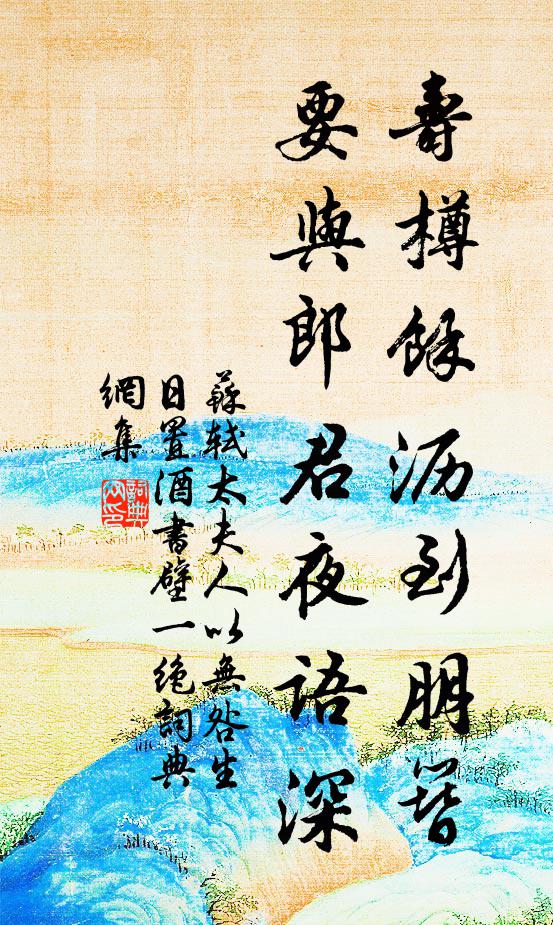 壽樽餘瀝到朋簪
要與郎君夜語深
蘇軾太夫人以無咎生
日置酒書壁一絶詞典
網集
詞典